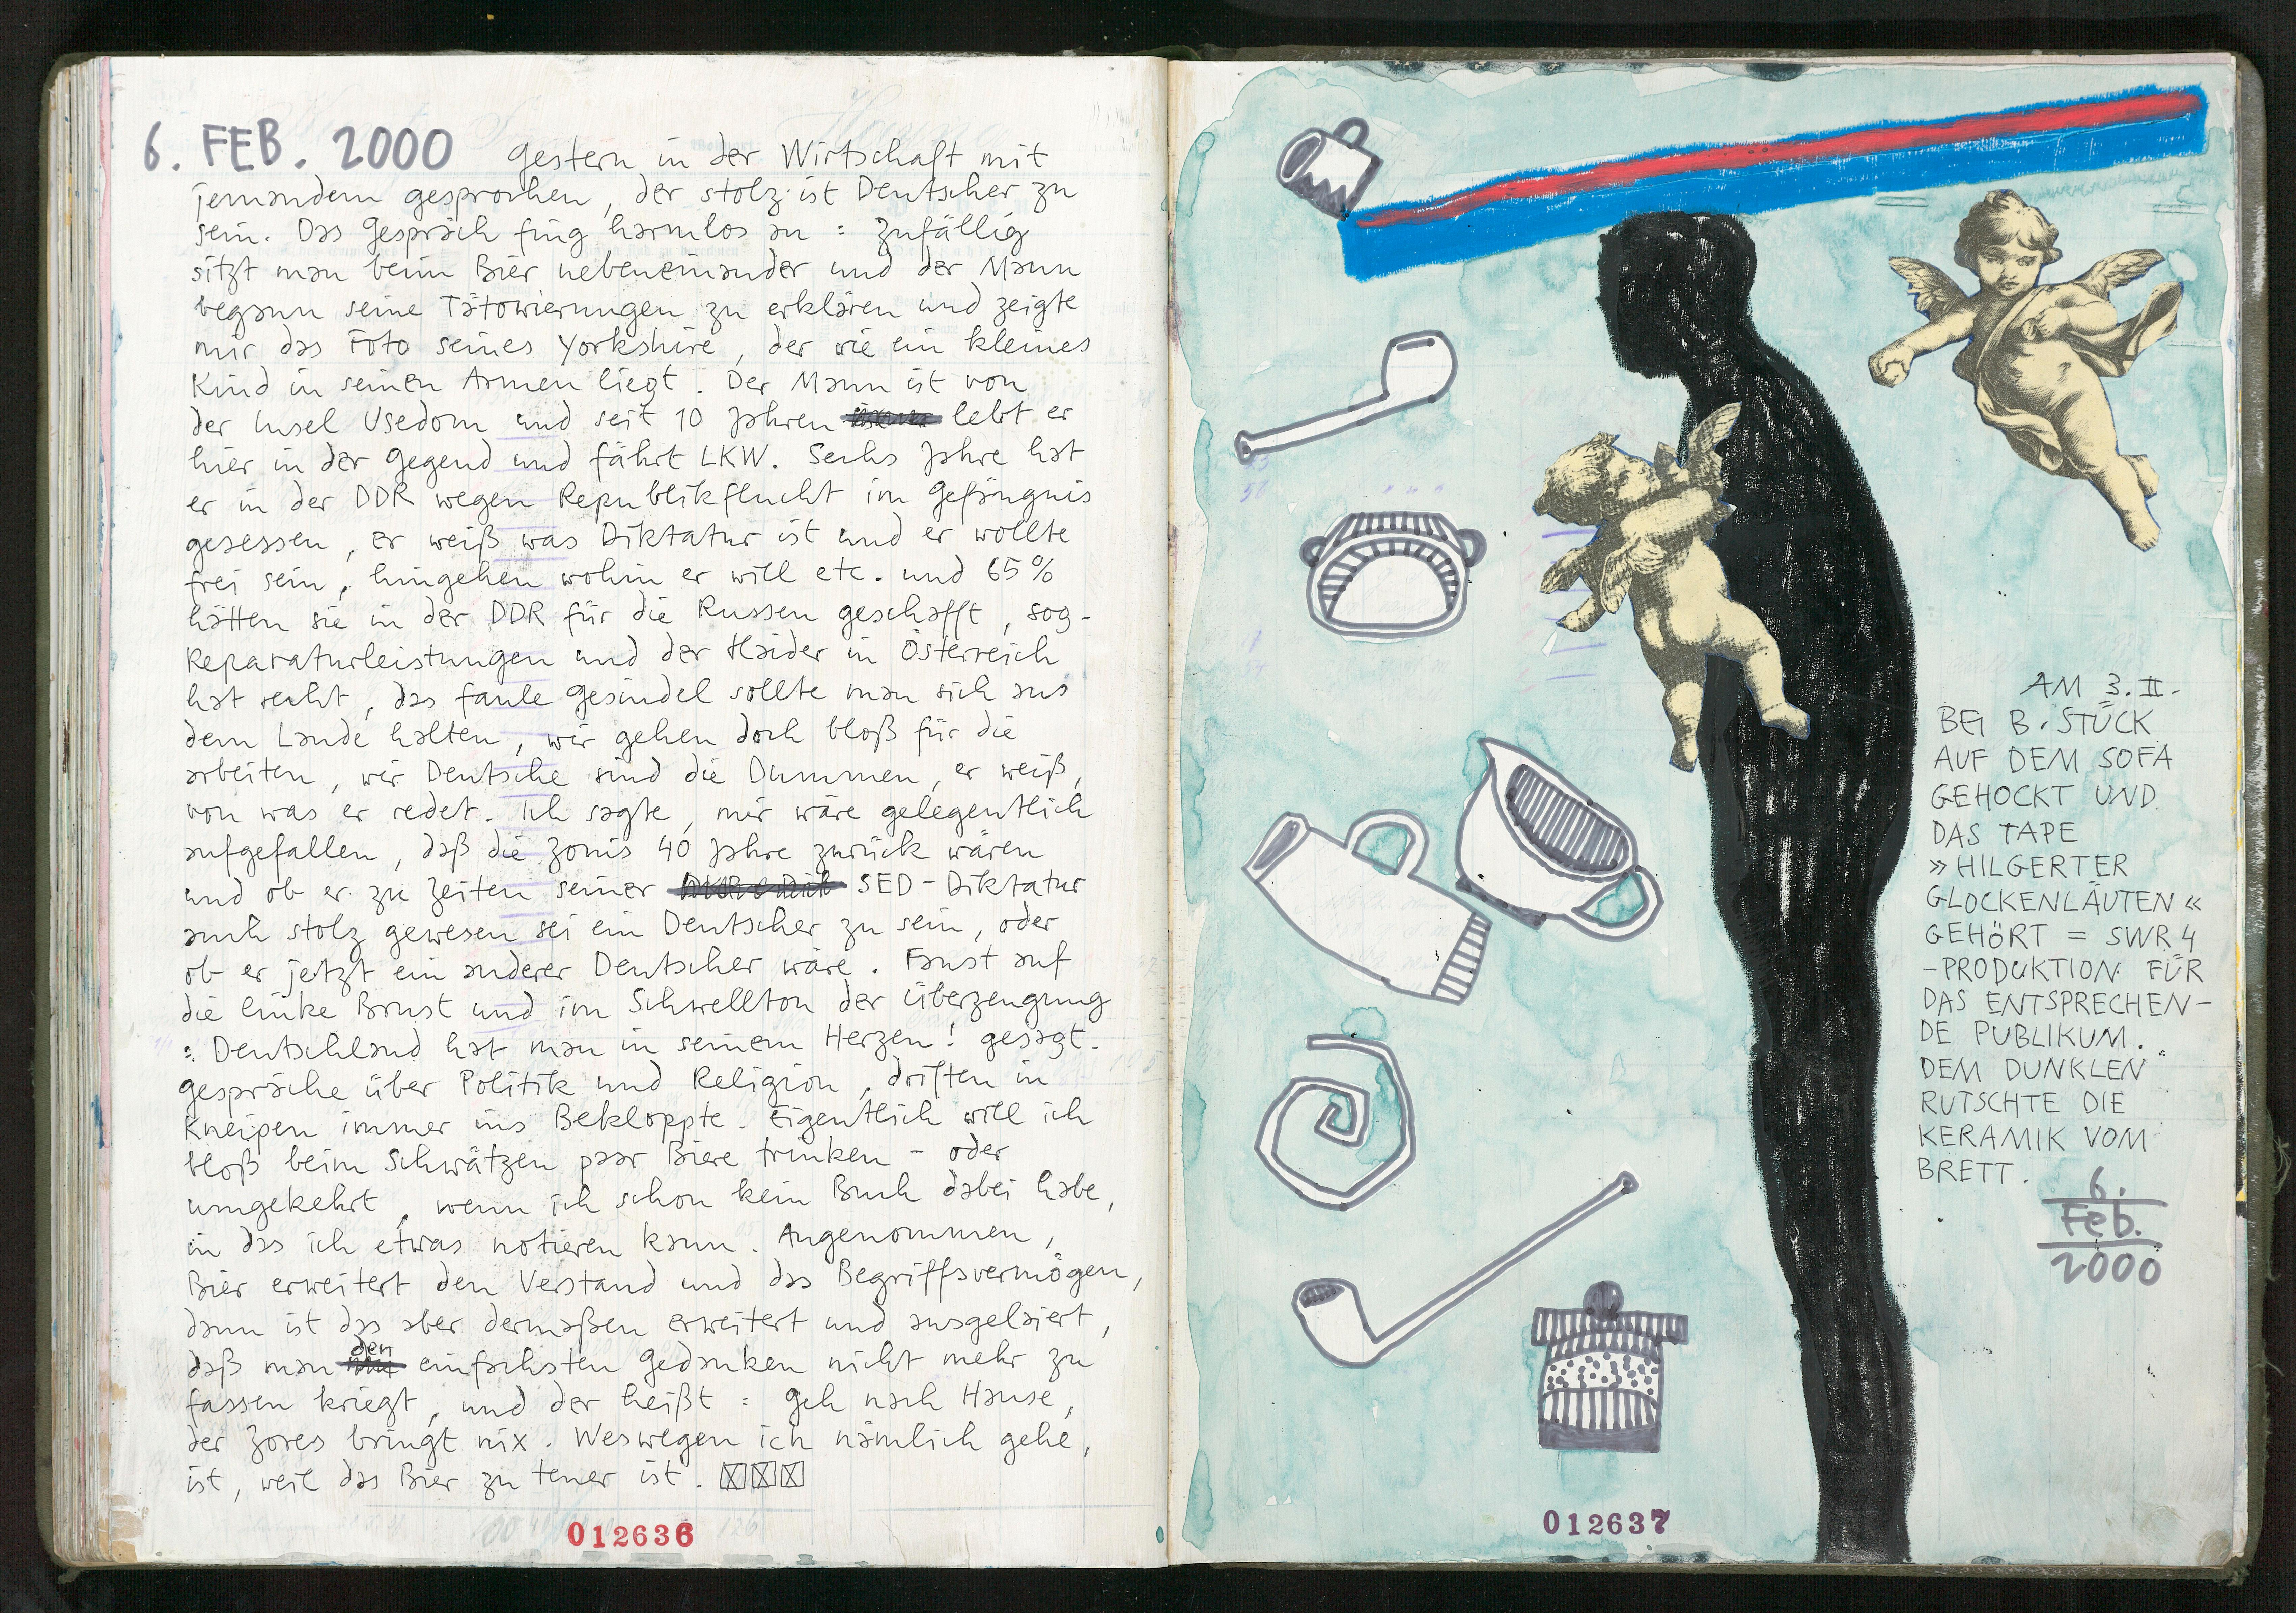 6. FEB. 2000 gestern in der Wirtschaft mit
jemandem gesprochen, der stolz ist Deutscher zu
sein. Das Gespräch fing harmlos an : zufällig
sitzt man beim Bier nebeneinander und der Mann
begann seine Tätowierungen zu erklären und zeigte
mir das Foto seines Yorkshire, der wie ein kleines
Kind in seinen Armen liegt. Der Mann ist von
der Insel Usedom und seit 10 Jahren lebt er
hier in der Gegend und fährt LKW. Sechs Jahre hat
er in der DDR wegen Republikflucht im Gefängnis
gesessen, er weiß was Diktatur ist und er wollte
frei sein, hingehen wohin er will etc. und 65%
hätten sie in der DDR für die Russen geschafft, sog.
Reparaturleistungen und der Haider in Österreich
hat recht, das faule Gesindel sollte man sich aus
dem Lande halten, wir gehen doch bloß für die
arbeiten, wir Deutsche sind die Dummen, er weiß,
von was er redet. Ich sagte, mir wäre gelegentlich
aufgefallen, daß die Zonis 40 Jahre zurück wären
und ob er zu Zeiten seiner SED-Diktatur
auch stolz gewesen sei ein Deutscher zu sein, oder
ob er jetzt ein anderer Deutscher wäre. Faust auf
die linke Brust und im Schwellton der Überzeugung
: Deutschland hat man in seinem Herzen! gesagt.
gespräche über Politik und Religion, driften in
Kneipen immer ins Bekloppte. Eigentlich will ich
bloß beim Schwätzen paar Biere trinken - oder
umgekehrt, wenn ich schon kein Buch dabei habe,
in das ich etwas notieren kann. Angenommen,
Bier erweitert den Verstand und das Begriffsvermögen,
dann ist das aber dermaßen erweitert und ausgeleiert,
daß man den einfachsten Gedanken nicht mehr zu
fassen kriegt, und der heißt : Geh nach Hause,
der Zores bringt nix. Weswegen ich nämlich gehe,
ist, weil das Bier zu teuer ist.
012636
AM 3. II.
BEI B. STÜCK
AUF DEM SOFA
GEHOCKT UND
DAS TAPE
»HILGERTER
GLOCKENLÄUTEN«
GEHÖRT = SWR 4
-PRODUKTION FÜR
DAS ENTSPRECHEN-
DE PUBLIKUM.
DEM DUNKLEN
RUTSCHTE DIE
KERAMIK VOM
BRETT.
6.
Feb.
2000
012637